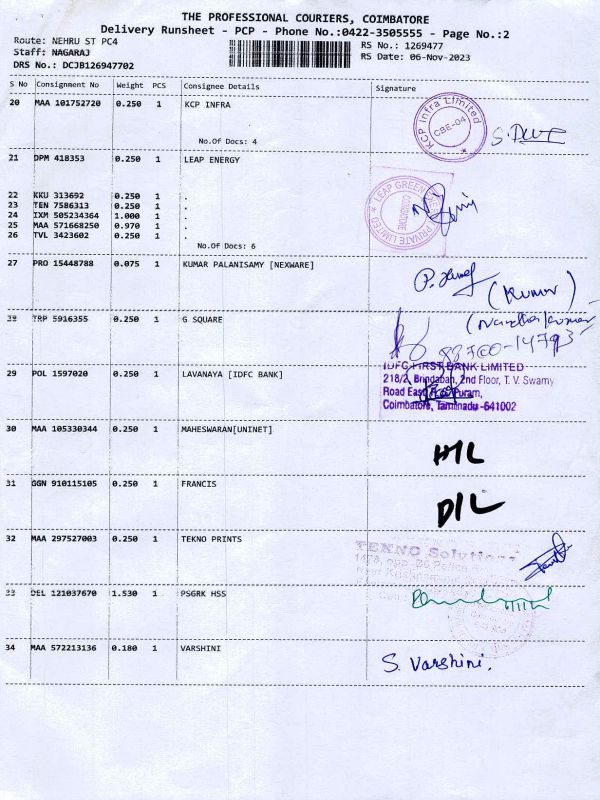 THE PROFESSIONAL COURIERS, COIMBATORE
Delivery Runsheet - PCP - Phone No.:0422-3505555 - Page No.:2
Route: NEHRU ST PC4
RS No.: 1269477
Staff: NAGARAJ
RS Date: 06-Nov-2023
DRS No.: DCJB126947702
S No Consignment No Weight PCS Consignee Details Signature
20 MAA 101752720 0.250 1 KCP INFRA
KCP Infra Limited
CBE-04
No.Of Docs: 4
21 DPM 418353 0.250 1 LEAP ENERGY
LEAP GREEN PRIVATE LIMITED
COIMBATORE
22 KKU 313692 0.250 1 .
23 TEN 7586313 0.250 1 .
24 IXM 505234364 1.000 1 .
25 MAA 571668250 0.970 1 .
26 TVL 3423602 0.250 1 .
No.Of Docs: 6
27 PRO 15448788 0.075 1 KUMAR PALANISAMY [NEXWARE]
(Kumar)
28 TRP 5916355 0.250 1 G SQUARE
88700-14793
29 POL 1597020 0.250 1 LAVANAYA [IDFC BANK]
IDFC FIRST BANK LIMITED
218/2, Brindaban, 2nd Floor, T. V. Swamy
Road East, Puram,
Coimbatore, Tamilnadu -641002
30 MAA 105330344 0.250 1 MAHESWARAN[UNINET]
31 GGN 910115105 0.250 1 FRANCIS
D/L
32 MAA 297527003 0.250 1 TEKNO PRINTS
TEKNO Solutions
33 DEL 121037670 1.530 1 PSGRK HSS
34 MAA 572213136 0.180 1 VARSHINI
S. Varshini.